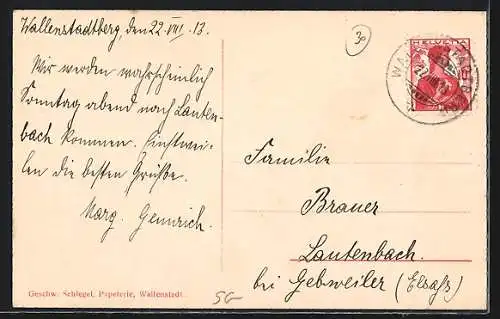 Wallenstadtberg, den 22. VIII. 13.
Wir werden wahrscheinlich
Sonntag abend nach Lauten-
bach kommen. Einstwei-
len die besten Grüße.
Marg. Gemrich.
30
HELVETIA
Familie
Brauer
Lautenbach.
bei Gebweiler (Elsaß)
Geschw. Schlegel, Papeterie, Wallenstadt.
SG